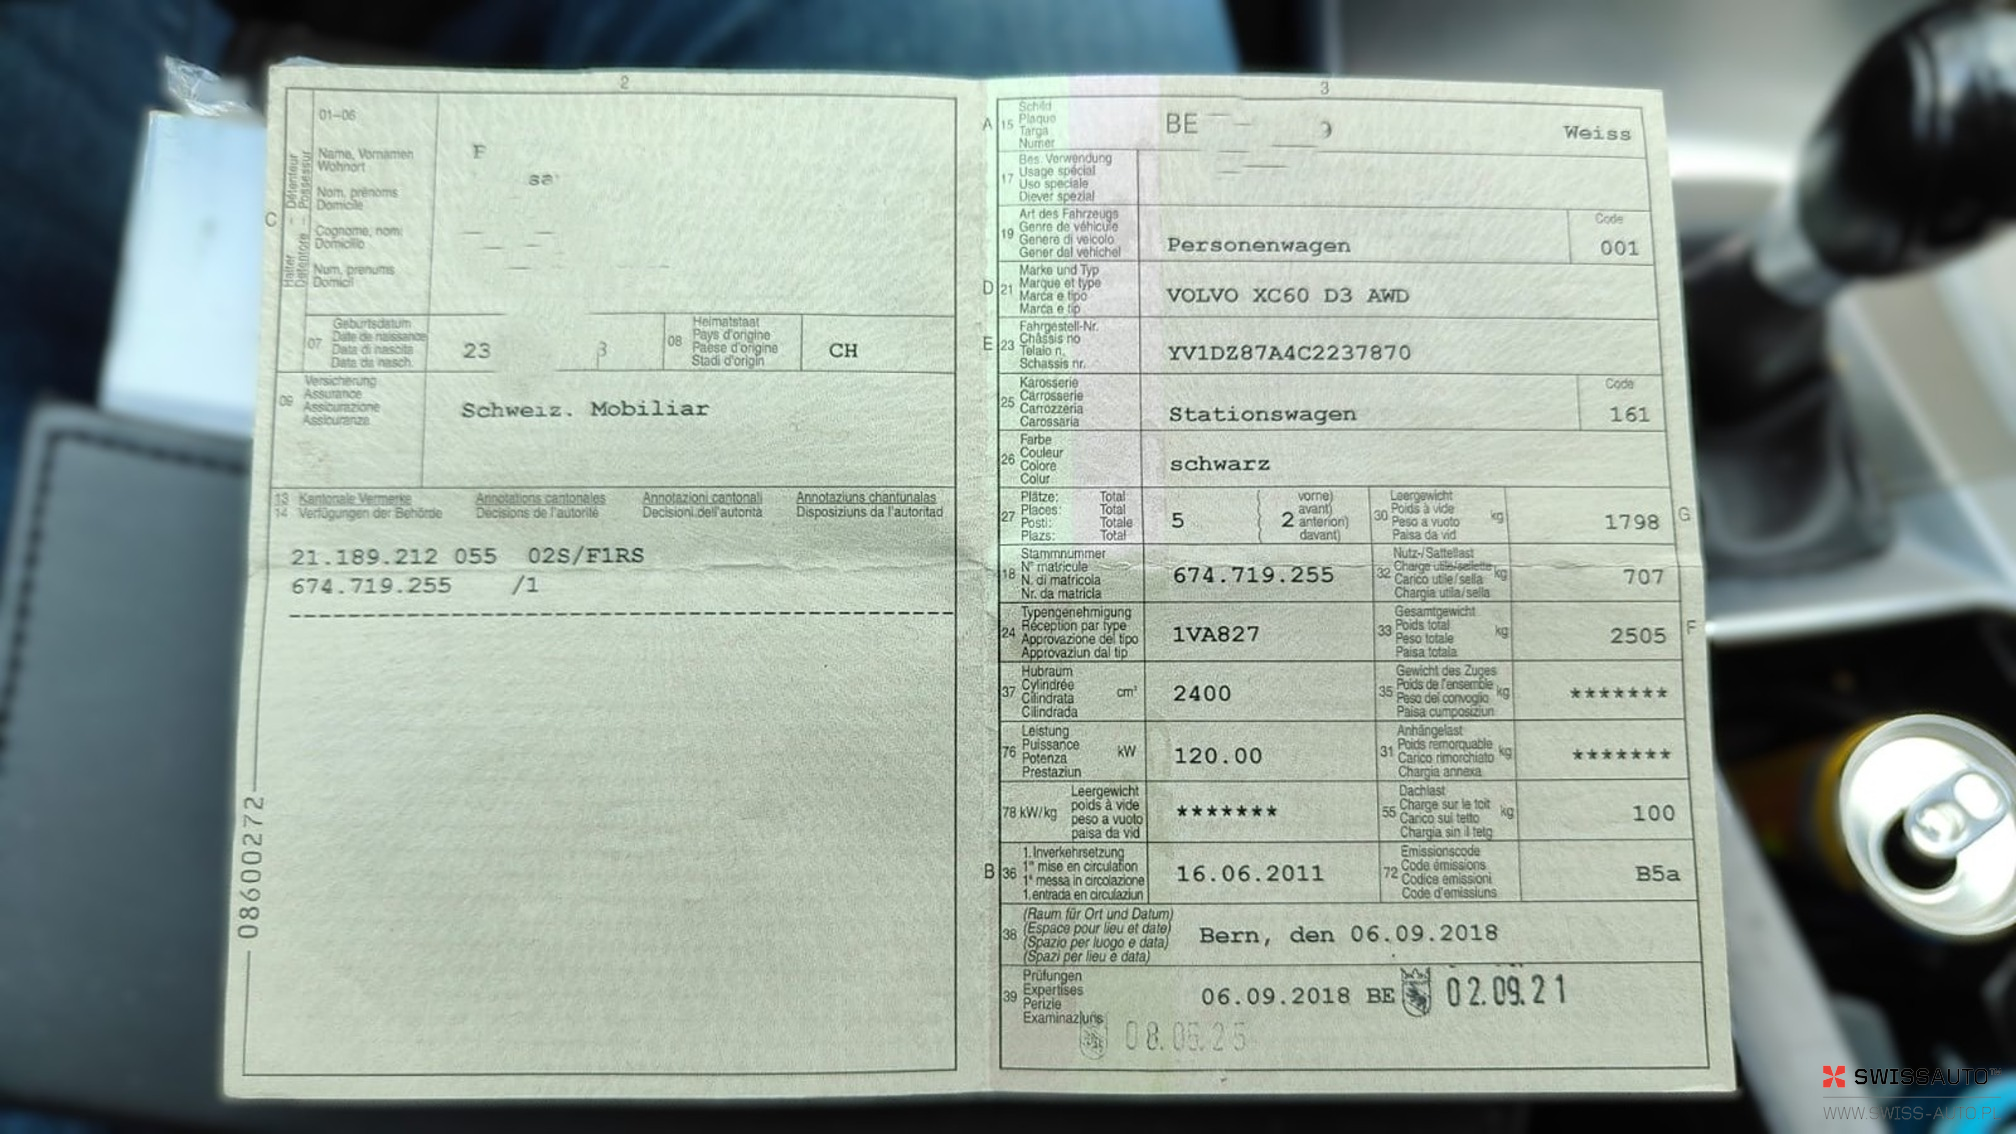 2
01-06
Halter - Détenteur
Detentore - Possessur
C
Name, Vornamen
Wohnort
Nom, prénoms
Domicile
Cognome, nomi
Domicilio
Num, prenums
Domicil
F
sa
07
Geburtsdatum
Date de naissance
Data di nascita
Data da nasch.
23
3
08
Heimatstaat
Pays d'origine
Paese d'origine
Stadi d'origin
CH
09
Versicherung
Assurance
Assicurazione
Assicuranza
Schweiz. Mobiliar
13 Kantonale Vermerke Annotations cantonales Annotazioni cantonali Annotaziuns chantunalas
14 Verfügungen der Behörde Décisions de l'autorité Decisioni dell'autorità Disposiziuns da l'autoritad
21.189.212 055 02S/F1RS
674.719.255 /1
08600272
3
A 15
Schild
Plaque
Targa
Numer
BE
Weiss
17
Bes. Verwendung
Usage spécial
Uso speciale
Diever spezial
19
Art des Fahrzeugs
Genre de véhicule
Genere di veicolo
Gener dal vehichel
Personenwagen
Code
001
D 21
Marke und Typ
Marque et type
Marca e tipo
Marca e tip
VOLVO XC60 D3 AWD
E 23
Fahrgestell-Nr.
Châssis no
Telaio n.
Schassis nr.
YV1DZ87A4C2237870
25
Karosserie
Carrosserie
Carrozzeria
Carossaria
Stationswagen
Code
161
26
Farbe
Couleur
Colore
Colur
schwarz
27
Plätze: Total
Places: Total
Posti: Totale
Plazs: Total
5
2
vorne)
avant)
anteriori)
davant)
30
Leergewicht
Poids à vide
Peso a vuoto
Paisa da vid
kg
1798
G
18
Stammnummer
N° matricule
N. di matricola
Nr. da matricla
674.719.255
32
Nutz-/Sattellast
Charge utile/sellette
Carico utile/sella
Chargia utila/sella
kg
707
24
Typengenehmigung
Réception par type
Approvazione del tipo
Approvaziun dal tip
1VA827
33
Gesamtgewicht
Poids total
Peso totale
Paisa totala
kg
2505
F
37
Hubraum
Cylindrée
Cilindrata
Cilindrada
cm³
2400
35
Gewicht des Zuges
Poids de l'ensemble
Peso del convoglio
Paisa cumposiziun
kg
*******
76
Leistung
Puissance
Potenza
Prestaziun
kW
120.00
31
Anhängelast
Poids remorquable
Carico rimorchiato
Chargia annexa
kg
*******
78 kW/kg
Leergewicht
poids à vide
peso a vuoto
paisa da vid
*******
55
Dachlast
Charge sur le toit
Carico sul tetto
Chargia sin il tetg
kg
100
B 36
1. Inverkehrsetzung
1re mise en circulation
1a messa in circolazione
1. entrada en circulaziun
16.06.2011
72
Emissionscode
Code émissions
Codice emissioni
Code d'emissiuns
B5a
38
(Raum für Ort und Datum)
(Espace pour lieu et date)
(Spazio per luogo e data)
(Spazi per lieu e data)
Bern, den 06.09.2018
39
Prüfungen
Expertises
Perizie
Examinaziuns
06.09.2018 BE 02.09.21
08.05.25
SWISSAUTO
WWW.SWISS-AUTO.PL